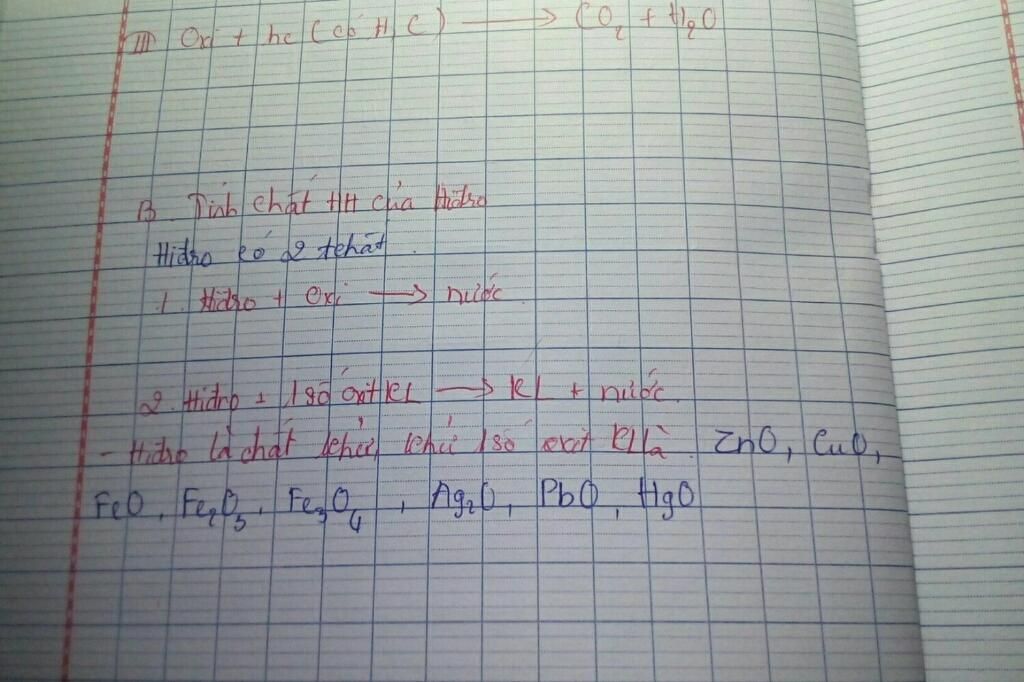 III Oxi + hc (có H, C) → CO₂ + H₂O
B. Tính chất HH của Hidro
Hidro có 2 tchất.
1. Hidro + Oxi → nước.
2. Hidro + 1 số oxit KL → KL + nước.
- Hidro là chất khử, khử 1 số oxit KL là ZnO, CuO,
FeO, Fe₂O₃, Fe₃O₄, Ag₂O, PbO, HgO